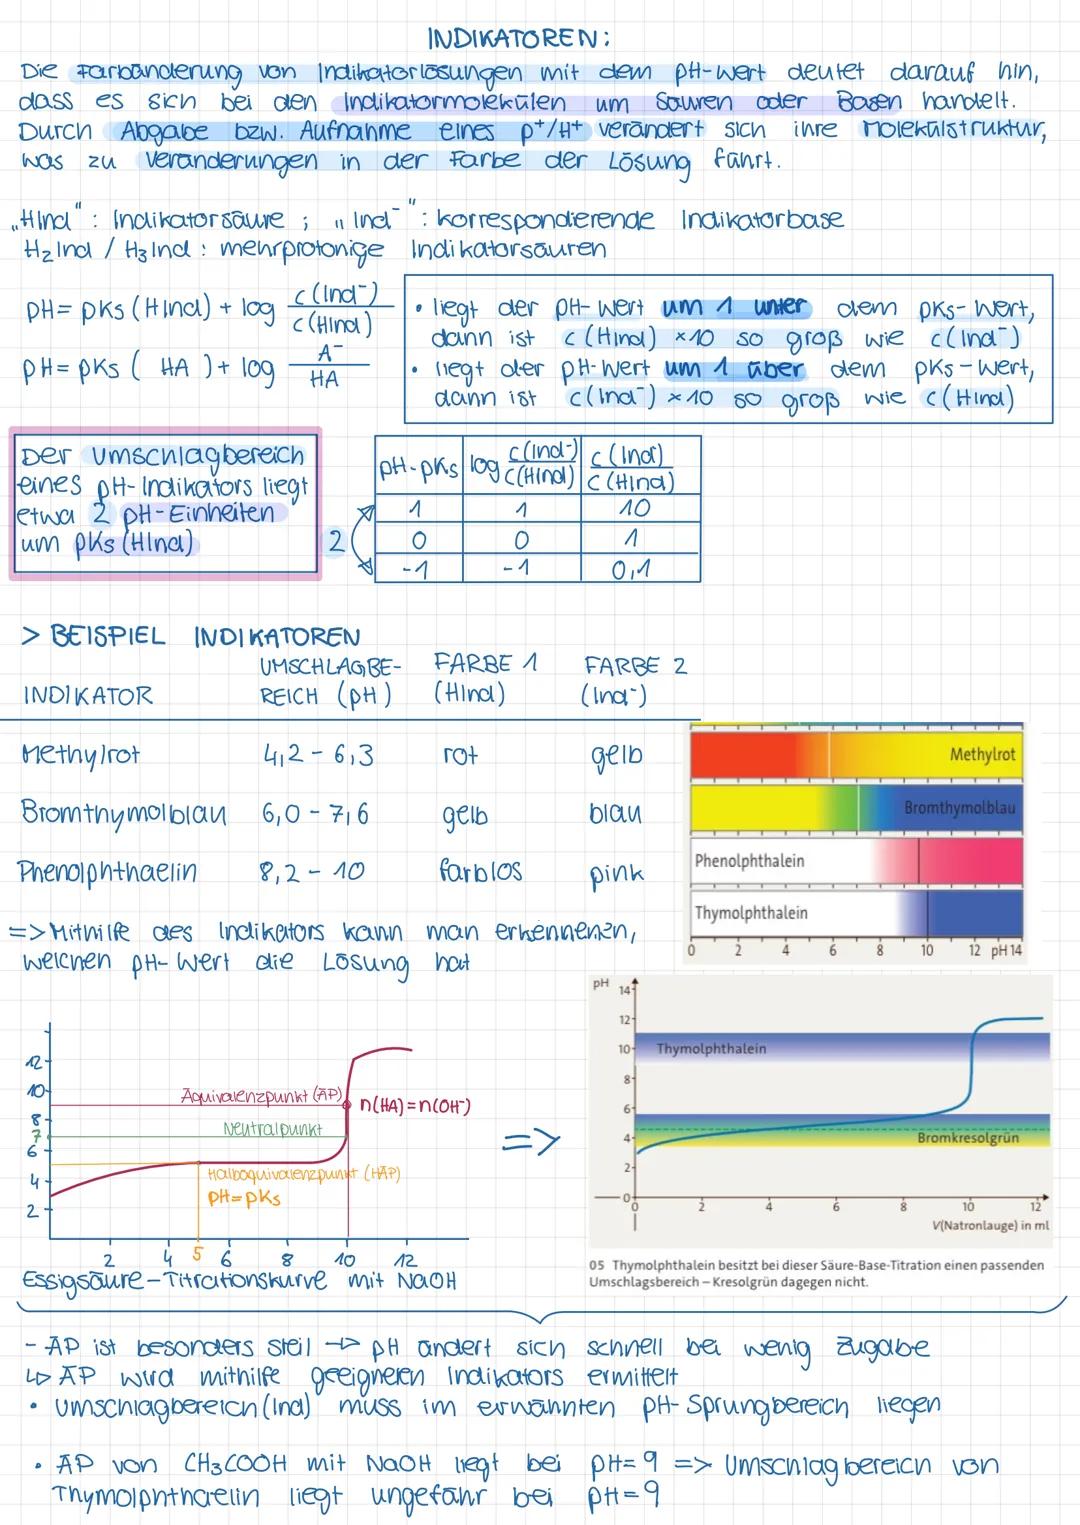 INDIKATOREN:
Die Farbänderung von Indikatorlösungen mit dem pH-Wert deutet darauf hin,
dass es sich bei den Indikatormolekülen um Säuren oder Basen handelt.
Durch Abgabe bzw. Aufnahme eines p⁺/H⁺ verändert sich ihre Molekülstruktur,
was zu Veränderungen in der Farbe der Lösung führt.
„HInd": Indikatorsäure ; „Ind⁻": korrespondierende Indikatorbase
H₂Ind / H₃Ind : mehrprotonige Indikatorsäuren
pH = pKs (HInd) + log c(Ind⁻) / c(HInd)
pH = pKs ( HA ) + log A⁻ / HA
• liegt der pH-Wert um 1 unter dem pKs-Wert,
dann ist c(HInd) ×10 so groß wie c(Ind⁻)
• liegt der pH-Wert um 1 über dem pKs-Wert,
dann ist c(Ind⁻) ×10 so groß wie c(HInd)
Der Umschlagbereich
eines pH-Indikators liegt
etwa 2 pH-Einheiten
um pKs (HInd)
pH-pKs | log c(Ind-)/c(HInd) | c(Ind⁻)/c(HInd)
1 | 1 | 10
2
0 | 0 | 1
-1 | -1 | 0,1
> BEISPIEL INDIKATOREN
INDIKATOR UMSCHLAGBE-REICH (pH) FARBE 1 (HInd) FARBE 2 (Ind⁻)
Methylrot 4,2 - 6,3 rot gelb
Bromthymolblau 6,0 - 7,6 gelb blau
Phenolphthaelin 8,2 - 10 farblos pink
Methylrot
Bromthymolblau
Phenolphthalein
Thymolphthalein
0 2 4 6 8 10 12 pH 14
=> Mithilfe des Indikators kann man erkennenen,
welchen pH-Wert die Lösung hat
12
10
8
7
6
4
2
Äquivalenzpunkt (ÄP)
n(HA) = n(OH⁻)
Neutralpunkt
Halbäquivalenzpunkt (HÄP)
pH = pKs
2 4 5 6 8 10 12
Essigsäure-Titrationskurve mit NaOH
=>
pH
14
12
10
8
6
4
2
0
Thymolphthalein
Bromkresolgrün
0 2 4 6 8 10 12
V(Natronlauge) in ml
05 Thymolphthalein besitzt bei dieser Säure-Base-Titration einen passenden
Umschlagsbereich – Kresolgrün dagegen nicht.
- ÄP ist besonders steil → pH ändert sich schnell bei wenig Zugabe
↳ ÄP wird mithilfe geeigneren Indikators ermittelt
• Umschlagbereich (Ind) muss im erwähnten pH-Sprungbereich liegen
• ÄP von CH₃COOH mit NaOH liegt bei pH=9 => Umschlagbereich von
Thymolphthaelin liegt ungefähr bei pH=9